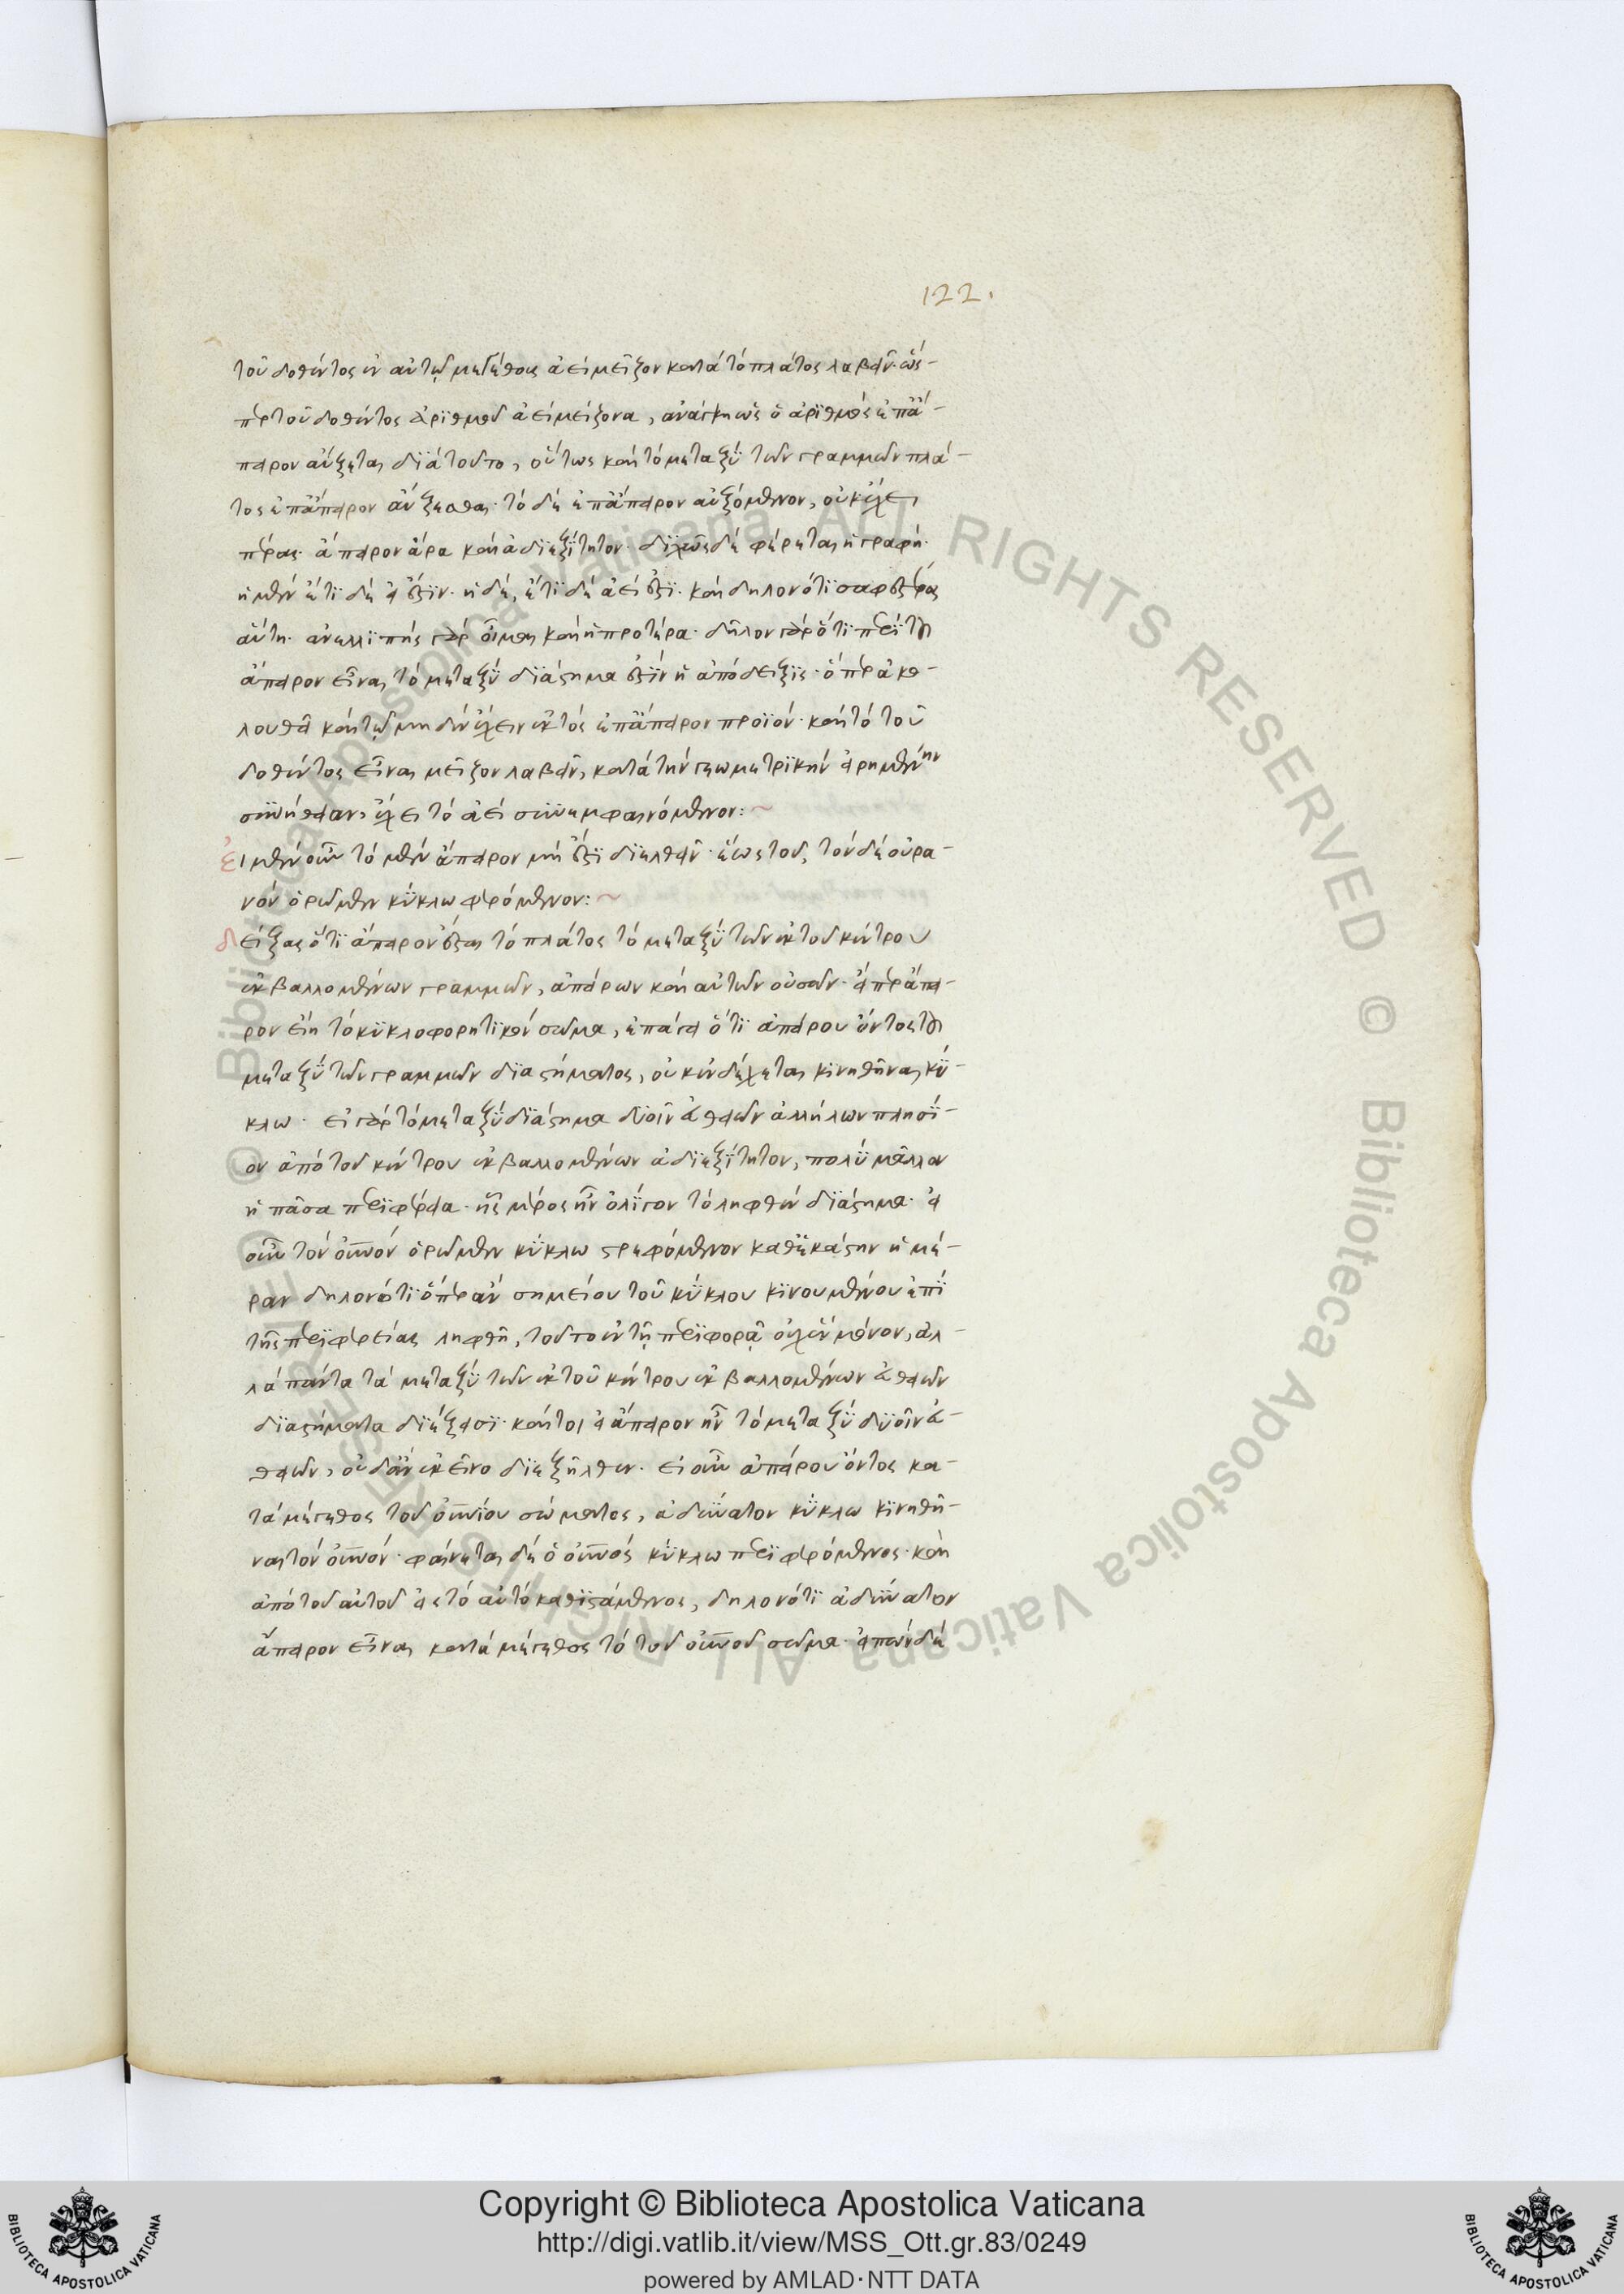 122.
τοῦ δοθέντος ἐν αὐτῷ μεγέθους ἀεὶ μεῖζον κατὰ τὸ πλάτος λαβεῖν· ὥσ-
περ τοῦ δοθέντος ἀριθμοῦ ἀεὶ μείζονα, ἀνάγκη ὡς ὁ ἀριθμὸς ἐπ' ἄ-
πειρον αὔξεται διὰ τοῦτο, οὕτως καὶ τὸ μεταξὺ τῶν γραμμῶν πλά-
τος ἐπ' ἄπειρον αὔξεσθαι· τὸ δὲ ἐπ' ἄπειρον αὐξόμενον, οὐκ ἔχει
πέρας· ἄπειρον ἄρα καὶ ἀδιεξίτητον· διχῶς δὲ φέρεται ἡ γραφή·
ἡ μὲν ἔτι δὲ εἰ ἔστιν· ἡ δέ, ἔτι δὲ ἀεί ἐστι· καὶ δηλονότι σαφεστέρα
αὕτη· ἀνελλιπὴς γὰρ οἶμαι καὶ ἡ προτέρα· δῆλον γὰρ ὅτι περὶ τοῦ
ἄπειρον εἶναι τὸ μεταξὺ διάστημα ἐστὶν ἡ ἀπόδειξις· ὅπερ ἀκο-
λουθεῖ καὶ τῷ μηδὲν ἔχειν ἐκτὸς ἐπ' ἄπειρον προϊόν· καὶ τὸ τοῦ
δοθέντος εἶναι μεῖζον λαβεῖν, κατὰ τὴν γεωμετρικὴν εἰρημένην
συνήθειαν, ἔχει τὸ ἀεὶ συνεμφαινόμενον:~
εἰ μὲν οὖν τὸ μὲν ἄπειρον μὴ ἔστι διελθεῖν· ἕως τοῦ, τὸν δὲ οὐρα-
νὸν ὁρῶμεν κύκλω φερόμενον:~
δείξας ὅτι ἄπειρον ἔσται τὸ πλάτος τὸ μεταξὺ τῶν ἐκ τοῦ κέντρου
ἐκβαλλομένων γραμμῶν, ἀπείρων καὶ αὐτῶν οὐσῶν· εἴπερ ἄπει-
ρον εἴη τὸ κυκλοφορητικὸν σῶμα, ἐπάγει ὅτι ἀπείρου ὄντος τοῦ
μεταξὺ τῶν γραμμῶν διαστήματος, οὐκ ἐνδέχεται κινηθῆναι κύ-
κλω· εἰ γὰρ τὸ μεταξὺ διάστημα δυοῖν εὐθειῶν ἀλλήλων πλησί-
ον ἀπὸ τοῦ κέντρου ἐκβαλλομένων ἀδιεξίτητον, πολὺ μᾶλλον
ἡ πᾶσα περιφέρεια· ἧς μέρος ἦν ὀλίγον τὸ ληφθὲν διάστημα· εἰ
οὖν τὸν οὐνὸν ὁρῶμεν κύκλω στρεφόμενον καθ' ἑκάστην ἡμέ-
ραν δηλονότι ὅπερ ἂν σημείου τοῦ κύκλου κινουμένου ἐπὶ
τῆς περιφερείας ληφθῇ, τοῦτο ἐν τῇ περιφορᾷ οὐχ ἓν μόνον, ἀλ-
λὰ πάντα τὰ μεταξὺ τῶν ἐκ τοῦ κέντρου ἐκβαλλομένων εὐθειῶν
διαστήματα διέξεισι· καίτοι εἰ ἄπειρον ἦν τὸ μεταξὺ δυοῖν εὐ-
θειῶν, οὐδ' ἂν ἐκεῖνο διεξῆλθεν· εἰ οὖν ἀπείρου ὄντος κα-
τὰ μέγεθος τοῦ οὐνίου σώματος, ἀδύνατον κύκλω κινηθῆ-
ναι τὸν οὐνόν· φαίνεται δὲ ὁ οὐνὸς κύκλω περιφερόμενος· καὶ
ἀπὸ τοῦ αὐτοῦ εἰς τὸ αὐτὸ καθιστάμενος, δηλονότι ἀδύνατον
ἄπειρον εἶναι κατὰ μέγεθος τὸ τοῦ οὐνοῦ σῶμα· εἰπὼν δὲ
Copyright © Biblioteca Apostolica Vaticana
http://digi.vatlib.it/view/MSS_Ott.gr.83/0249
powered by AMLAD·NTT DATA